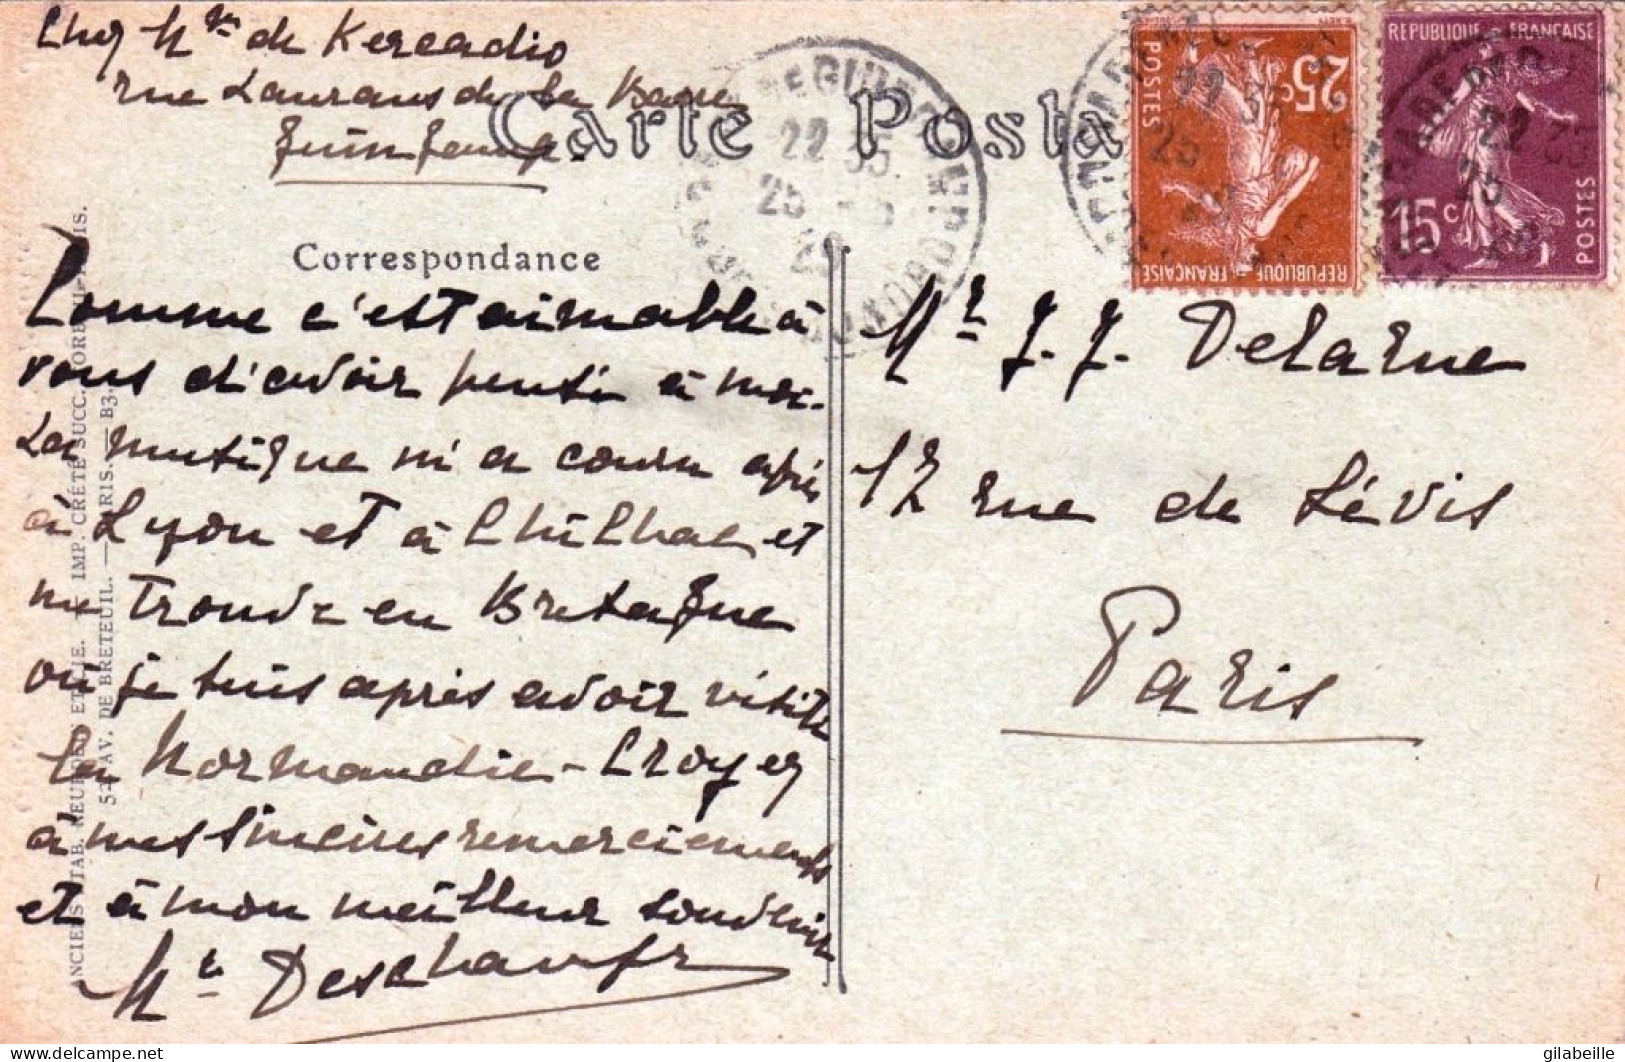 Chez Mme de Kercadio
rue Laurans de la Barre
Guingamp
Carte Posta
RÉPUBLIQUE FRANÇAISE
POSTES
25c
RÉPUBLIQUE FRANÇAISE
15c
POSTES
22 35
25
Correspondance
Comme c'est aimable à
vous d'avoir pensé à moi.
La musique m'a couru après
à Lyon et à Chilhac et
me trouve en Bretagne
où je suis après avoir visité
la Normandie - Croyez
à mes sincères remerciements
et à mon meilleur souvenir
Deschamps
Mr J. J. Delarue
12 rue de Lévis
Paris
ANCIENS ETAB. NEURDEIN ET CIE. — IMP. CRÉTÉ SUCC. CORBEIL-PARIS.
52, AV. DE BRETEUIL. — PARIS. — B3.
gilabeille